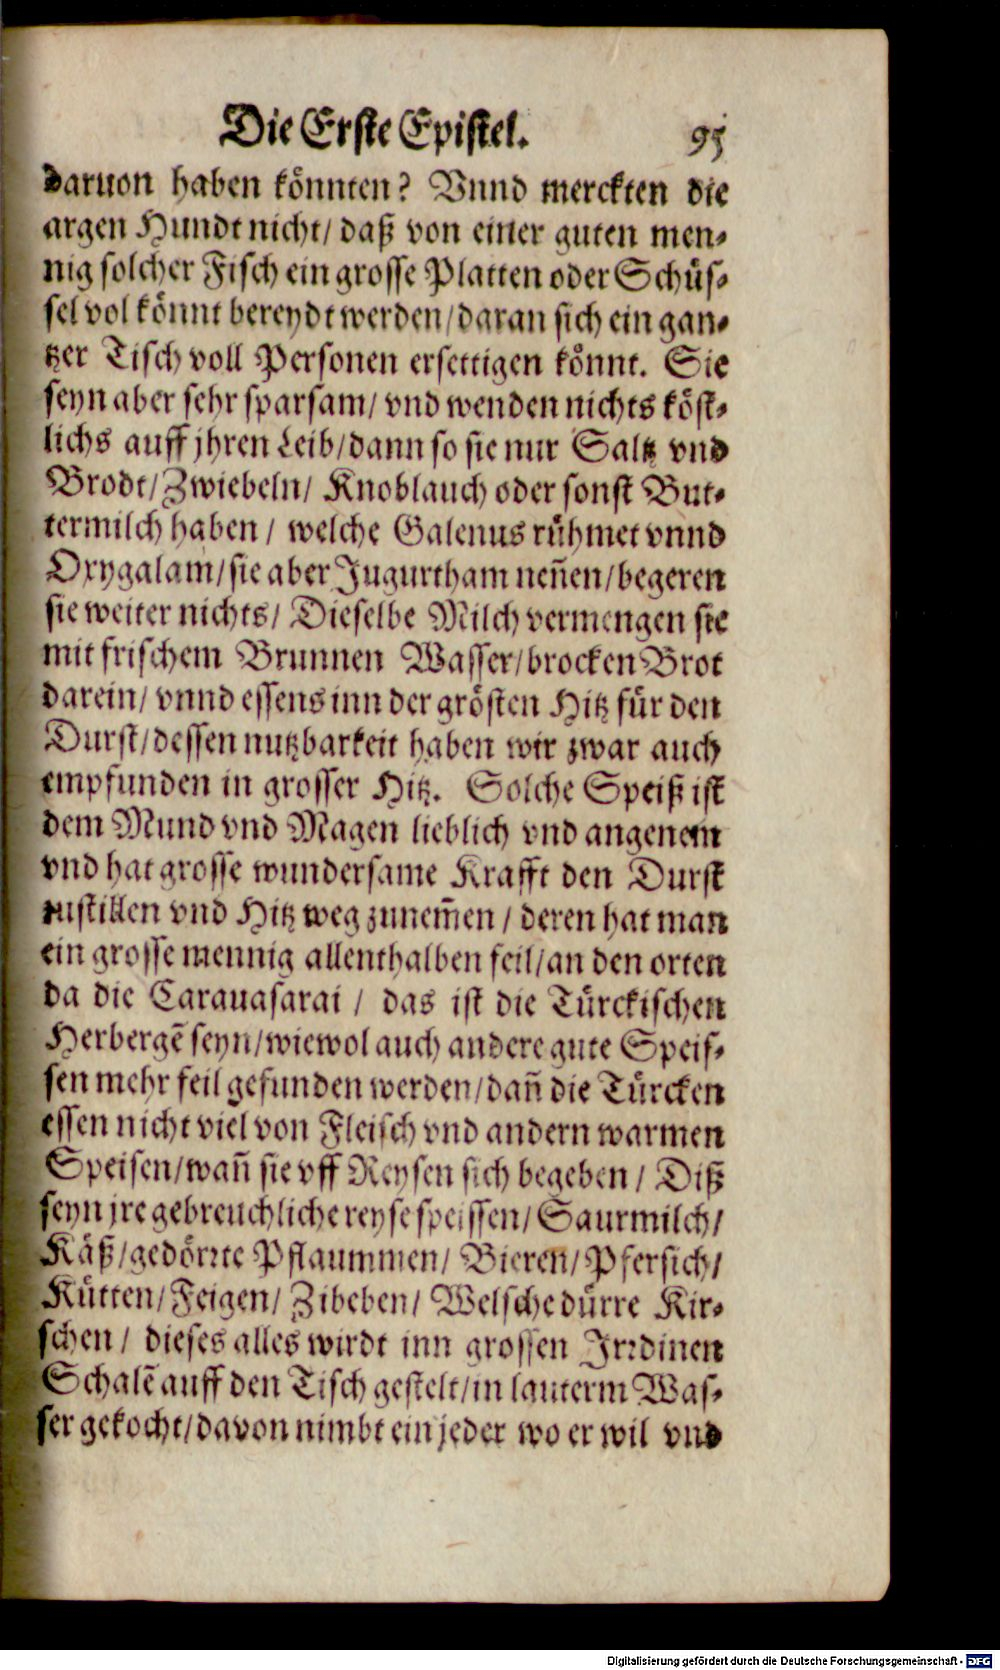 Die Erste Epistel. 95
daruon haben könnten? Vnnd merckten die
argen Hundt nicht/ daß von einer guten men-
nig solcher Fisch ein grosse Platten oder Schüs-
sel vol könnt bereydt werden/ daran sich ein gan-
tzer Tisch voll Personen ersettigen könnt. Sie
seyn aber sehr sparsam/ vnd wenden nichts köst-
lichs auff jhren Leib/ dann so sie nur Saltz vnd
Brodt/ Zwiebeln/ Knoblauch oder sonst But-
termilch haben/ welche Galenus rühmet vnnd
Oxygalam/ sie aber Jugurtham neñen/ begeren
sie weiter nichts/ Dieselbe Milch vermengen sie
mit frischem Brunnen Wasser/ brocken Brot
darein/ vnnd essens inn der grösten Hitz für den
Durst/ dessen nutzbarkeit haben wir zwar auch
empfunden in grosser Hitz. Solche Speiß ist
dem Mund vnd Magen lieblich vnd angenem
vnd hat grosse wundersame Krafft den Durst
zustillen vnd Hitz weg zunem̃en/ deren hat man
ein grosse mennig allenthalben feil/ an den orten
da die Carauasarai/ das ist die Türckischen
Herbergẽ seyn/ wiewol auch andere gute Speis-
sen mehr feil gefunden werden/ dañ die Türcken
essen nicht viel von Fleisch vnd andern warmen
Speisen/ wañ sie vff Reysen sich begeben/ Diß
seyn jre gebreuchliche reyse speissen/ Saurmilch/
Käß/ gedörrte Pflaummen/ Bieren/ Pfersich/
Kütten/ Feigen/ Zibeben/ Welsche dürre Kir-
schen/ dieses alles wirdt inn grossen Jrrdinen
Schalẽ auff den Tisch gestelt/ in lauterm Was-
ser gekocht/ davon nimbt ein jeder wo er wil vnd
Digitalisierung gefördert durch die Deutsche Forschungsgemeinschaft - DFG